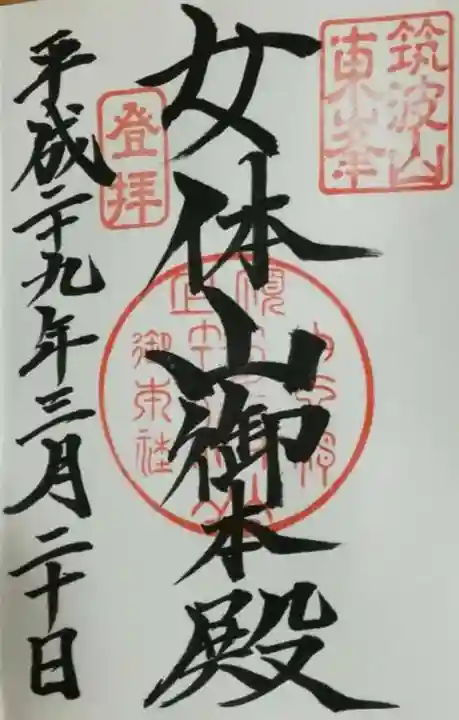 筑波山
東峯
女体山御本殿
登拝
平成二十九年三月二十日